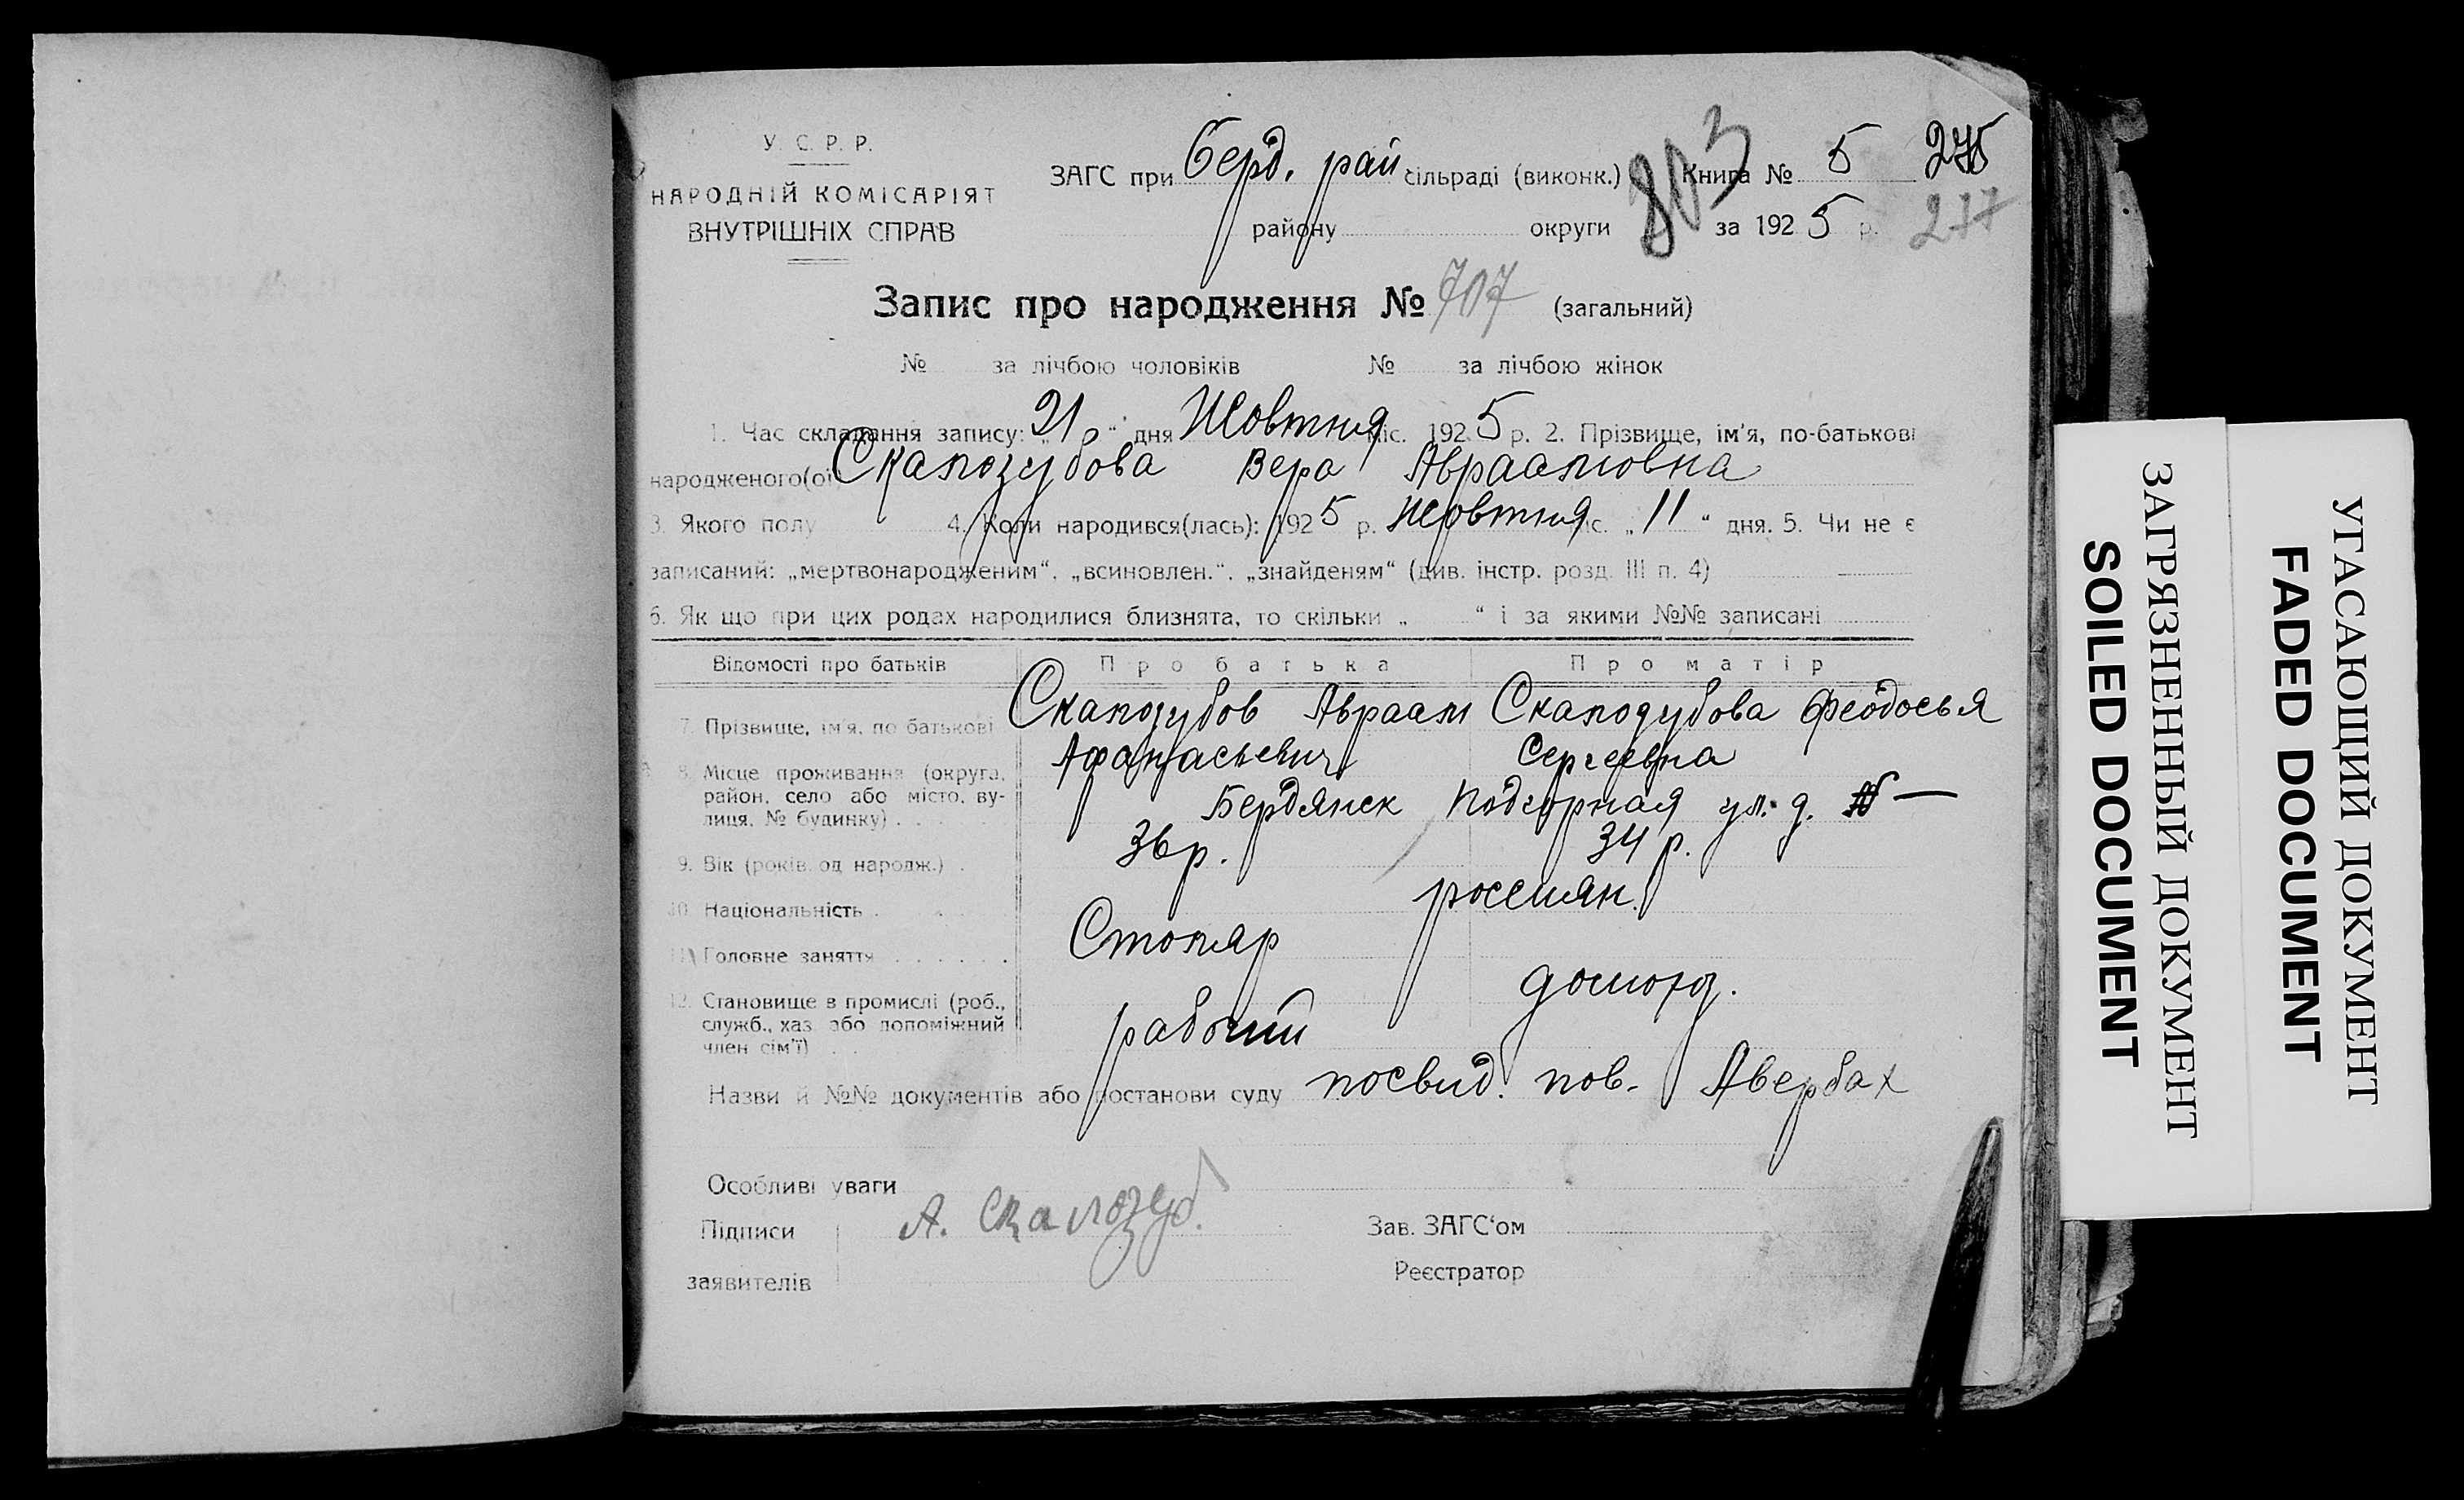 У. С. Р. Р.
НАРОДНІЙ КОМІСАРІЯТ
ВНУТРІШНІХ СПРАВ
ЗАГС при Берд. рай сільраді (виконк.) Книга № 5 275
803
району округи за 1925 р. 277
Запис про народження № 707 (загальний)
№ за лічбою чоловіків № за лічбою жінок
1. Час складання запису: „21“ дня Жовтня міс. 1925 р. 2. Прізвище, ім'я, по-батькові
народженого(ої) Скалозубова Вера Авраамовна
3. Якого полу 4. Коли народився(лась): 1925 р. Жовтня міс. „11“ дня. 5. Чи не є
записаний: „мертвонародженим“, „всиновлен.“, „знайденям“ (див. інстр. розд. III п. 4)
6. Як що при цих родах народилися близнята, то скільки „ “ і за якими №№ записані
Відомості про батьків Про батька Про матір
7. Прізвище, ім'я, по батькові Скалозубов Авраам Скалозубова Феодосья
Афанасьевич Сергеевна
8. Місце проживання (округа,
район, село або місто, ву-
лиця, № будинку) . . . Бердянск Подгорная ул. д. № —
9. Вік (років од народж.) . 36 р. 34 р.
10. Національність . . . россиян.
11. Головне заняття . . . . . . Столяр
12. Становище в промислі (роб.,
служб., хаз. або допоміжний
член сім'ї) . . рабочий домохоз.
Назви й №№ документів або постанови суду посвид. пов. Авербах
Особливі уваги
Підписи А. Скалозуб. Зав. ЗАГС'ом
заявителів Реєстратор
ЗАГРЯЗНЕННЫЙ ДОКУМЕНТ
SOILED DOCUMENT
УГАСАЮЩИЙ ДОКУМЕНТ
FADED DOCUMENT